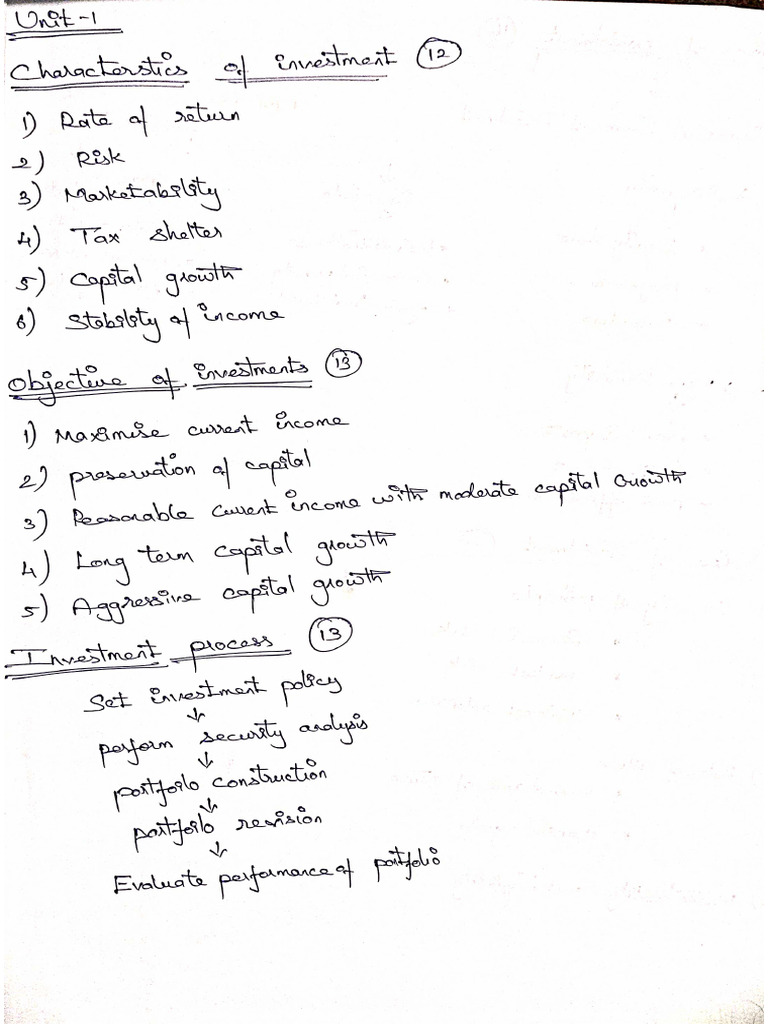 Unit-1
Characterstics of investment 12
1) Rate of return
2) Risk
3) Marketability
4) Tax shelter
5) Capital growth
6) Stability of income
Objective of investments 13
1) Maximise current income
2) preservation of capital
3) Reasonable current income with moderate capital Growth
4) Long term capital growth
5) Aggressive capital growth
Investment process 13
Set investment policy
↓
perform security analysis
↓
portfoilo construction
↓
portfoilo revision
↓
Evaluate performance of portfolio